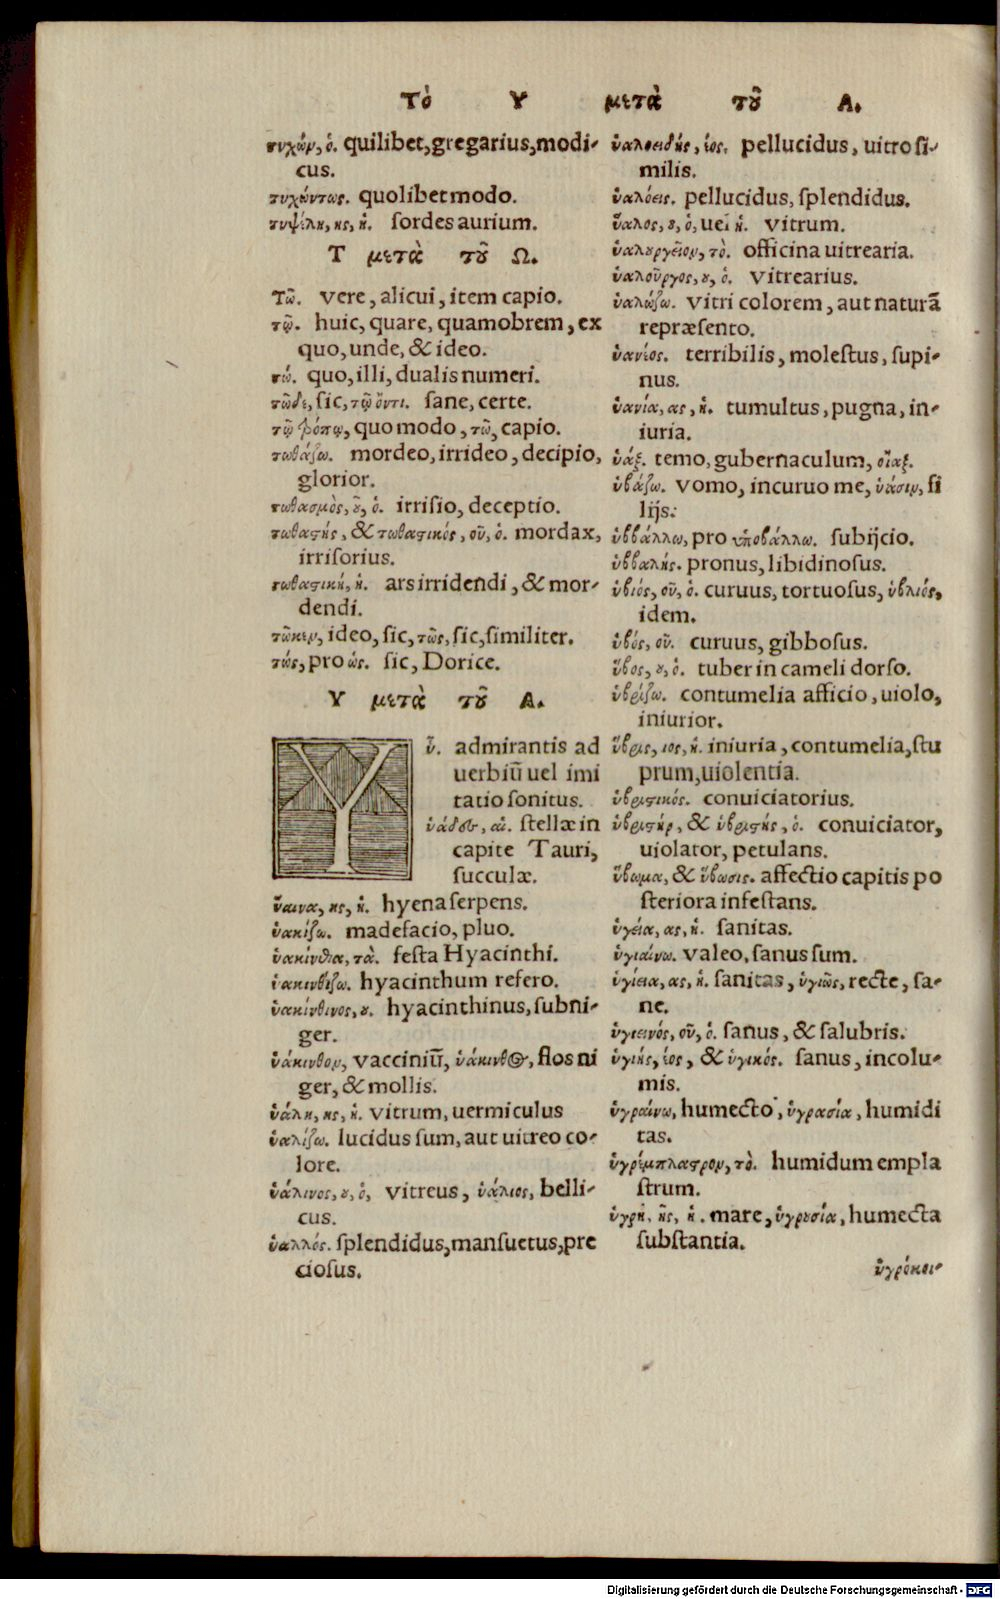 Τὸ Υ μετὰ τοῦ Α.
τυχὼν, ὁ. quilibet, gregarius, modi-
cus.
τυχόντως. quolibet modo.
τυψίλη, ης, ἡ. sordes aurium.
Τ μετὰ τοῦ Ω.
Τῶ. vere, alicui, item capio.
τῷ. huic, quare, quamobrem, ex
quo, unde, & ideo.
τώ. quo, illi, dualis numeri.
τῶδε, sic, τῷ ὄντι. sane, certe.
τῷ τρόπῳ, quo modo, τῶ, capio.
τωθάζω. mordeo, irrideo, decipio,
glorior.
τωθασμὸς, οῦ, ὁ. irrisio, deceptio.
τωθαστὴς, & τωθαστικός, οῦ, ὁ. mordax,
irrisorius.
τωθαστικὴ, ἡ. ars irridendi, & mor-
dendi.
τῶκερ, ideo, sic, τῶς, sic, similiter.
τώς, pro ὡς. sic, Dorice.
Υ μετὰ τοῦ Α.
Υ
ὗ. admirantis ad
uerbiū uel imi
tatio sonitus.
ὑάδες, αἱ. stellæ in
capite Tauri,
succulæ.
ὕαινα, ης, ἡ. hyena serpens.
ὑακίζω. madefacio, pluo.
ὑακίνθια, τὰ. festa Hyacinthi.
ὑακινθίζω. hyacinthum refero.
ὑακίνθινος, ου. hyacinthinus, subni-
ger.
ὑάκινθον, vacciniū, ὑάκινθος, flos ni
ger, & mollis.
ὑάλη, ης, ἡ. vitrum, uermiculus
ὑαλίζω. lucidus sum, aut uitreo co-
lore.
ὑάλινος, ου, ὁ, vitreus, ὑάλιος, belli-
cus.
ὑαλλός. splendidus, mansuetus, pre
ciosus.
ὑαλοειδής, έος. pellucidus, uitro si-
milis.
ὑαλόεις. pellucidus, splendidus.
ὕαλος, ου, ὁ, uel ἡ. vitrum.
ὑαλουργεῖον, τὸ. officina uitrearia.
ὑαλοῦργος, ου, ὁ. vitrearius.
ὑαλώζω. vitri colorem, aut naturā
repræsento.
ὑανίος. terribilis, molestus, supi-
nus.
ὑανία, ας, ἡ. tumultus, pugna, in-
iuria.
ὑάξ. temo, gubernaculum, οἴαξ.
ὑβάζω. vomo, incuruo me, ὑάσιν, fi
lijs.
ὑββάλλω, pro ὑποβάλλω. subijcio.
ὑββαλής. pronus, libidinosus.
ὑβιός, οῦ, ὁ. curuus, tortuosus, ὑβλιός,
idem.
ὑβός, οῦ. curuus, gibbosus.
ὕβος, ου, ὁ. tuber in cameli dorso.
ὑβρίζω. contumelia afficio, uiolo,
iniurior.
ὕβρις, ιος, ἡ. iniuria, contumelia, stu
prum, uiolentia.
ὑβριστικός. conuiciatorius.
ὑβριστὴρ, & ὑβριστὴς, ὁ. conuiciator,
uiolator, petulans.
ὕβωμα, & ὕβωσις. affectio capitis po
steriora infestans.
ὑγεία, ας, ἡ. sanitas.
ὑγιαίνω. valeo, sanus sum.
ὑγίεια, ας, ἡ. sanitas, ὑγιῶς, recte, sa-
ne.
ὑγιεινός, οῦ, ὁ. sanus, & salubris.
ὑγιής, έος, & ὑγικός. sanus, incolu-
mis.
ὑγραίνω, humecto, ὑγρασία, humidi
tas.
ὑγρέμπλαστρον, τὸ. humidum empla
strum.
ὑγρὴ, ῆς, ἡ. mare, ὑγρουσία, humecta
substantia.
ὑγρόκοι-
Digitalisierung gefördert durch die Deutsche Forschungsgemeinschaft - DFG